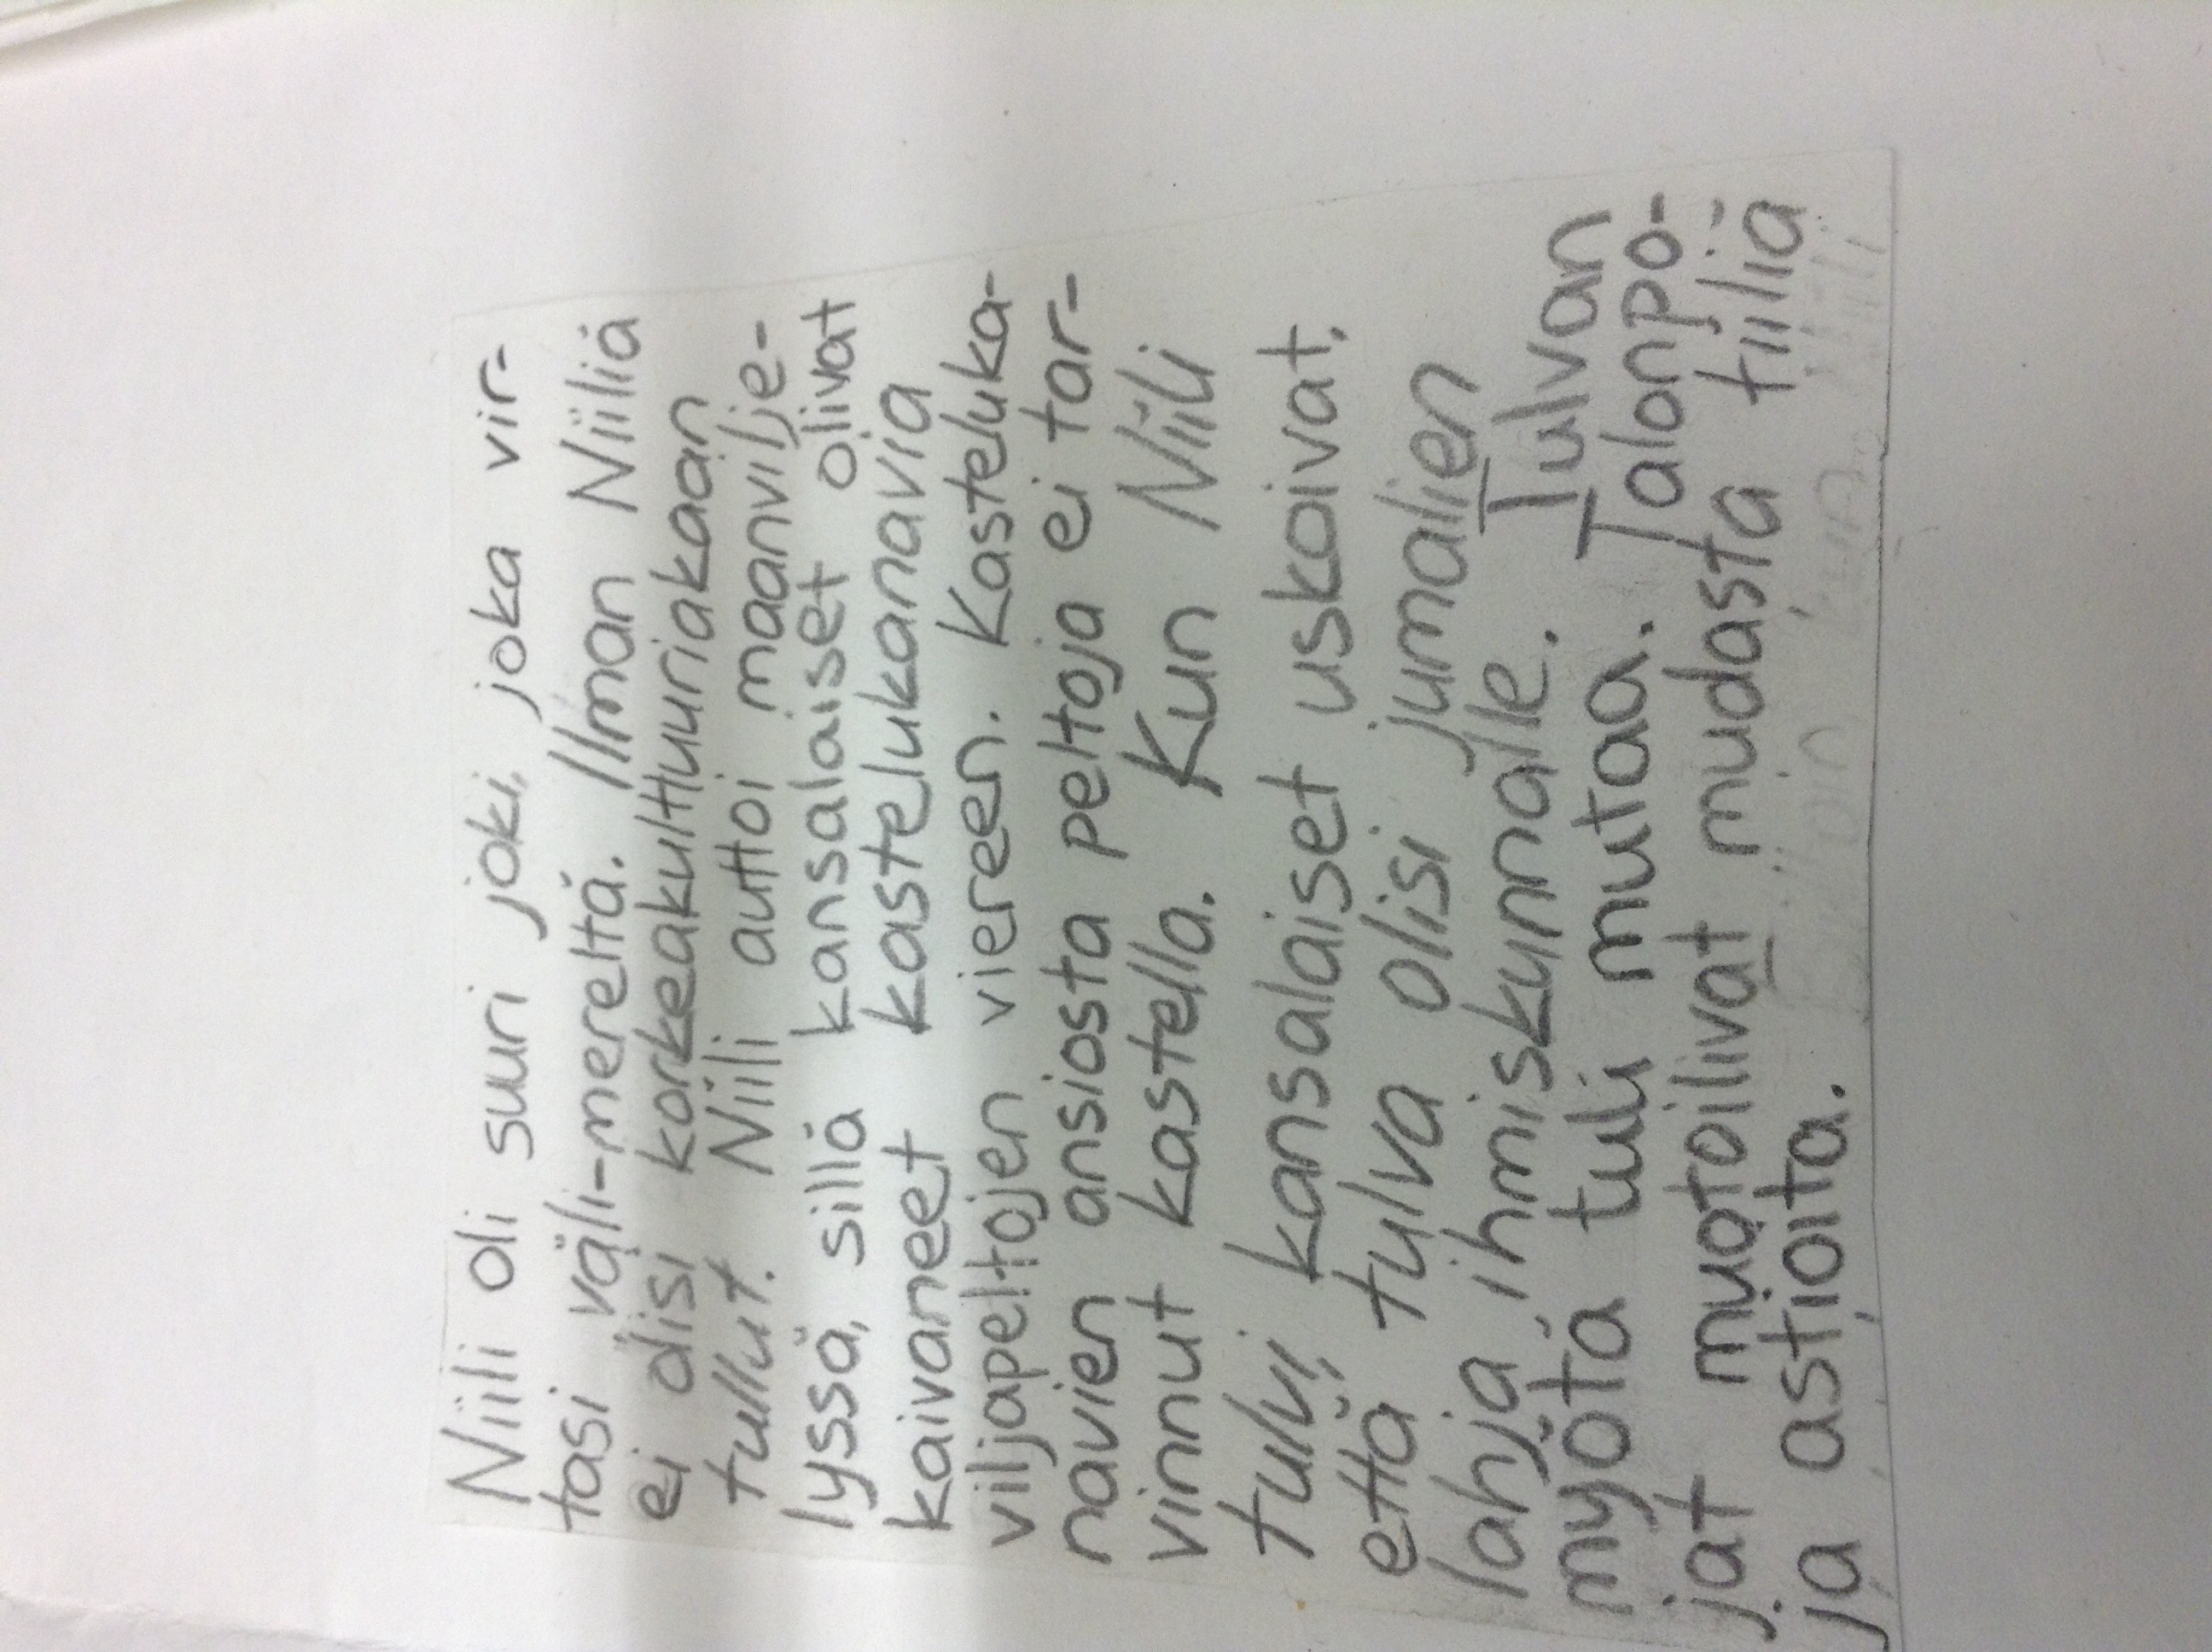 Niili oli suuri joki, joka vir-
tasi väli-mereltä. Ilman Niiliä
ei olisi korkeakulttuuriakaan
tullut. Niili auttoi maanvilje-
lyssä, sillä kansalaiset olivat
kaivaneet kastelukanavia
viljapeltojen viereen. Kasteluka-
navien ansiosta peltoja ei tar-
vinnut kastella. Kun Niili
tulvi, kansalaiset uskoivat,
että tulva olisi jumalien
lahja ihmiskunnalle. Tulvan
myötä tuli mutaa. Talonpo-
jat muotoilivat mudasta tiiliä
ja astioita.